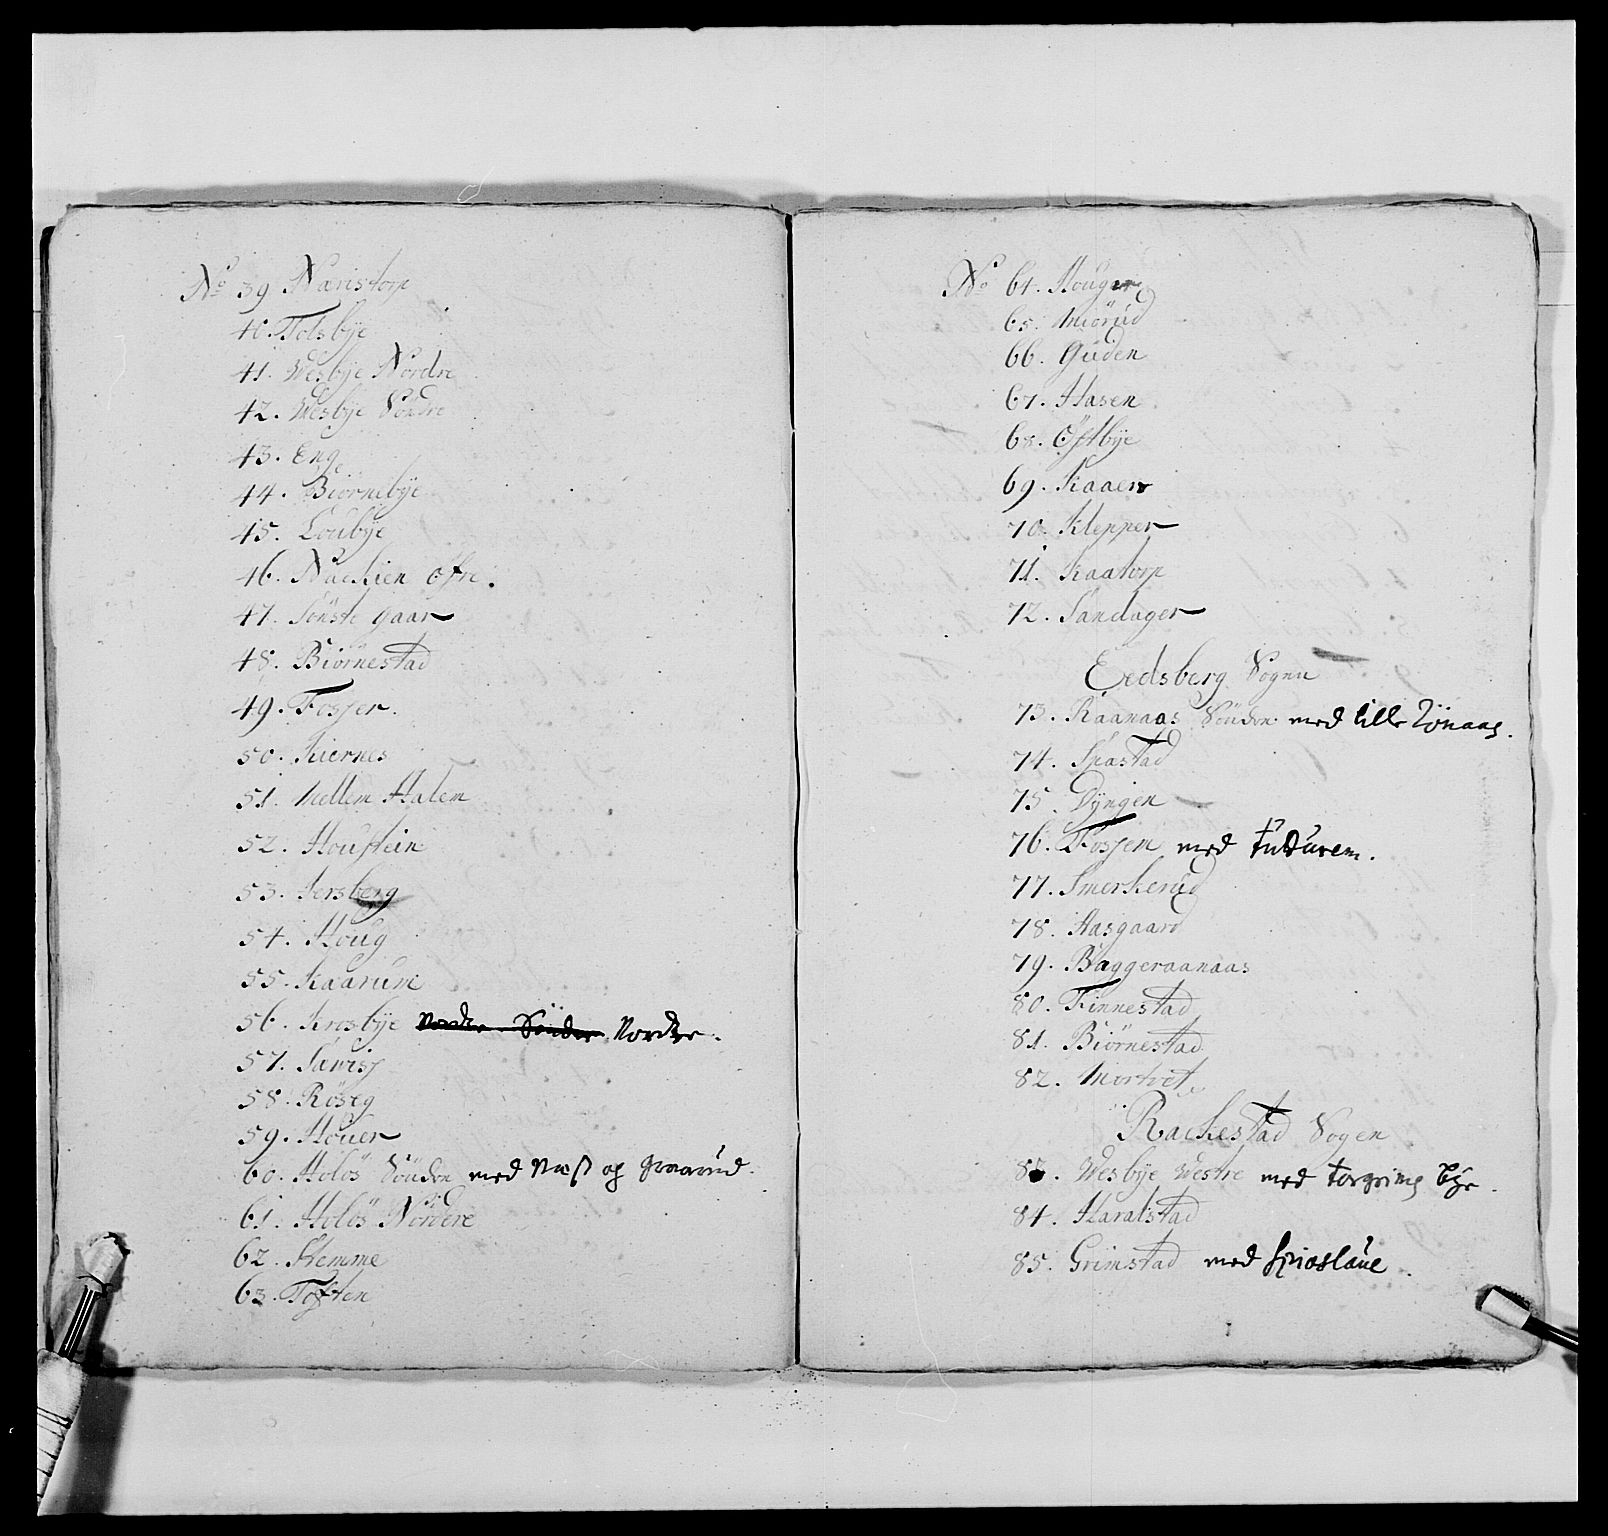 No 39 Naristorp
40. Tolsbÿe
41. Wesbÿe Nordre
42. Wesbÿe Söndre
43. Eng
44. Biörnebÿe
45. Loubÿe
46. Nackien Öfre.
47. Sönste gaar
48. Biörnestad
49. Fosser.
50. Kiernes
51. Mellem Halem
52. Houstein
53. Jersberg
54. Houg
55. Kaarum
56. Krosbÿe Nordre Söndre Nordre.
57.
58. Röseg
59. Höuer
60. Holös Söndre med Næss og Graarud.
61. Holös Nordere
62. Hemme
63. Toften
No 64. Houger
65. Miörud
66. Guden
67. Hasen
68. Östbÿe
69. Kaaen
70. Klepper
71. Kaatorp
72. Sandager
Eedsberg Sognn
73. Raanaas Söndre med lille Rönaas.
74. Spastad
75. Dÿngen
76. Fossem med
77. Smerkerud
78. Hasgaard
79. Baggeraanaas
80. Finnestad
81. Biörnestad
82. Mortvet
Rackestad Sogen
83. Wesbÿe Westre med Torgrims Bye.
84. Haralstad
85. Grimstad med Spioslaue.